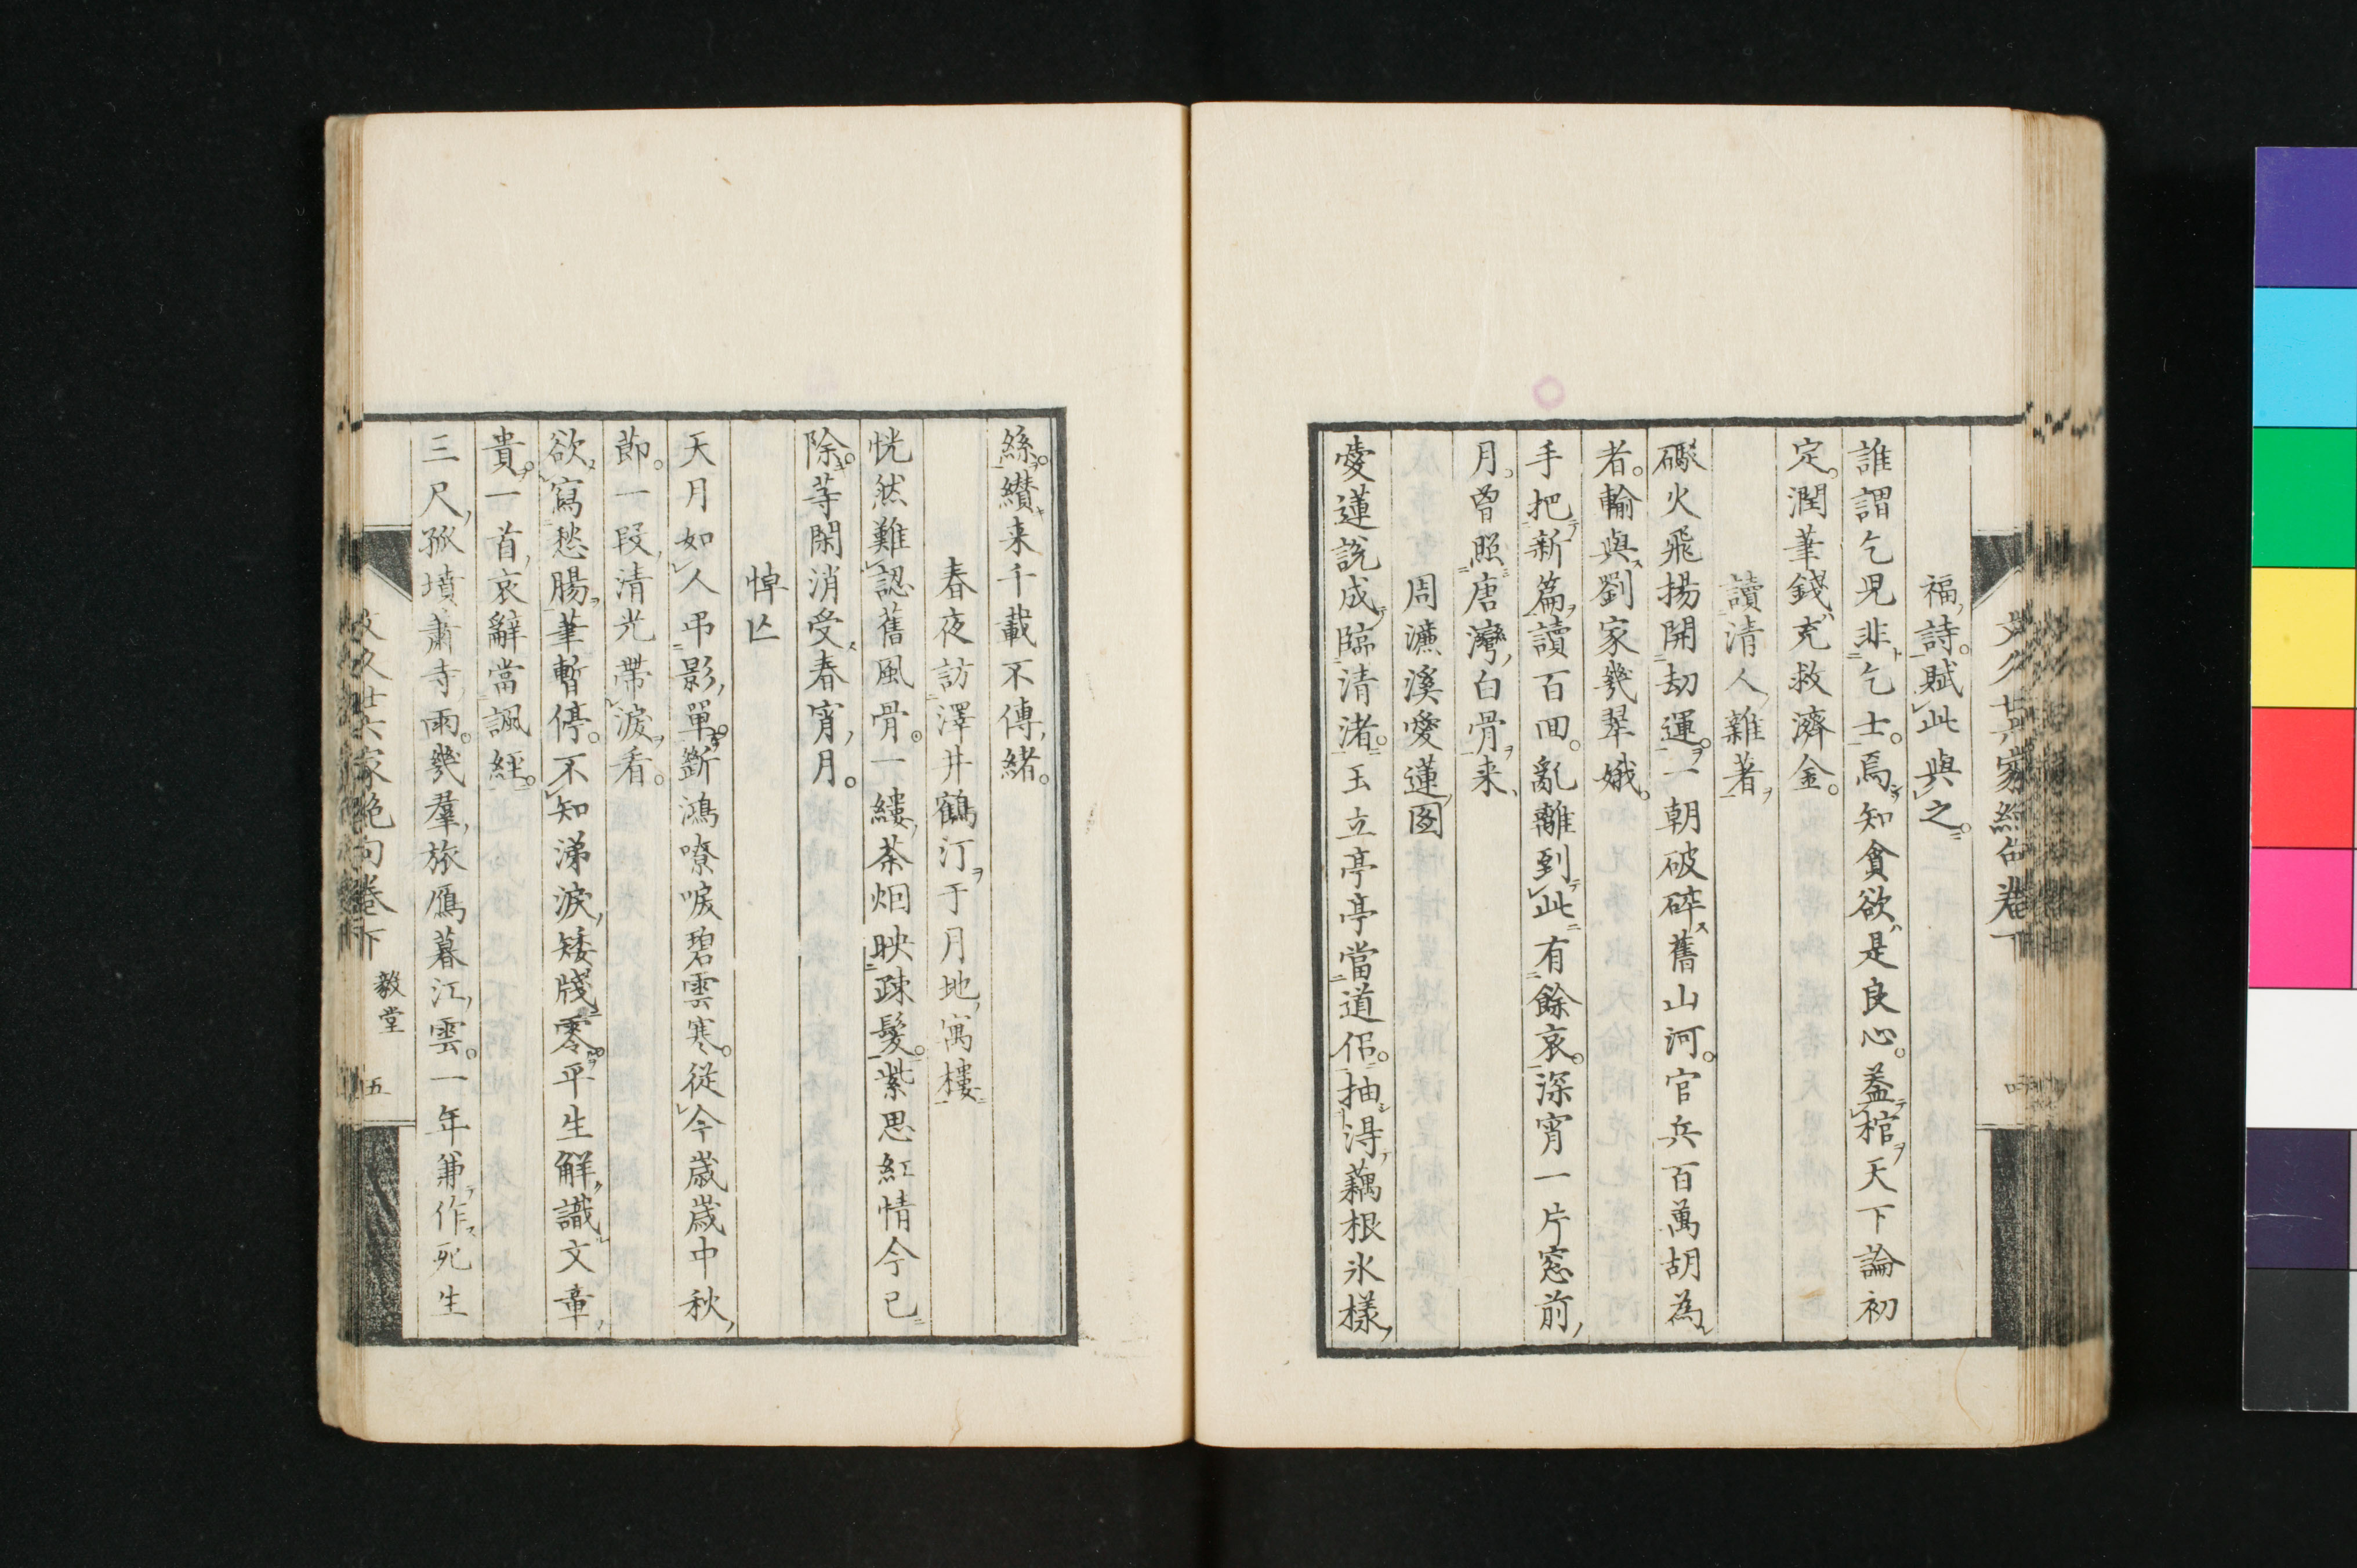 福詩賦此與之
誰謂乞兒非乞士焉知貪欲是良心蓋棺天下論初
定潤筆錢充救濟金
讀清人雜著
礮火飛揚開劫運一朝破碎舊山河官兵百萬胡為
者輸與劉家幾翠娥
手把新篇讀百回亂離到此有餘哀深宵一片窓前
月曾照唐灣白骨来
周濂溪愛蓮図
愛蓮說成臨清渚玉立亭亭當道侶抽得藕根氷様
絲纉来千載不傳緒
春夜訪澤井鶴汀于月地寓樓
恍然難認舊風骨一縷茶烟映疎髮紫思紅情今已
除等閑消受春宵月
悼亾
天月如人弔影單斷鴻嘹唳碧雲寒從今歲歲中秋
節一段清光帶淚看
欲寫愁腸筆暫停不知涕淚矮牋零平生解識文章
貴一首哀辭當諷經
三尺孤墳肅寺雨幾羣旅鴈暮江雲一年兼作死生
文久廿六家絶句巻下 毅堂 五